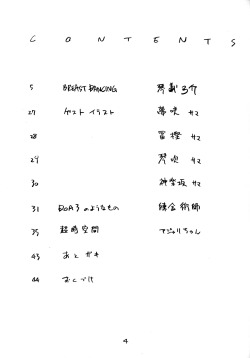 CONTENTS
5 BREAST DANCING 琴義弓介
27 ゲスト イラスト 夢咲 サマ
28 富樫 サマ
29 琴吹 サマ
30 神楽坂 サマ
31 DOA3 のようなもの 錬金術師
35 超時空間 マジョリちゃん
43 あと ガキ
44 おくづけ
4